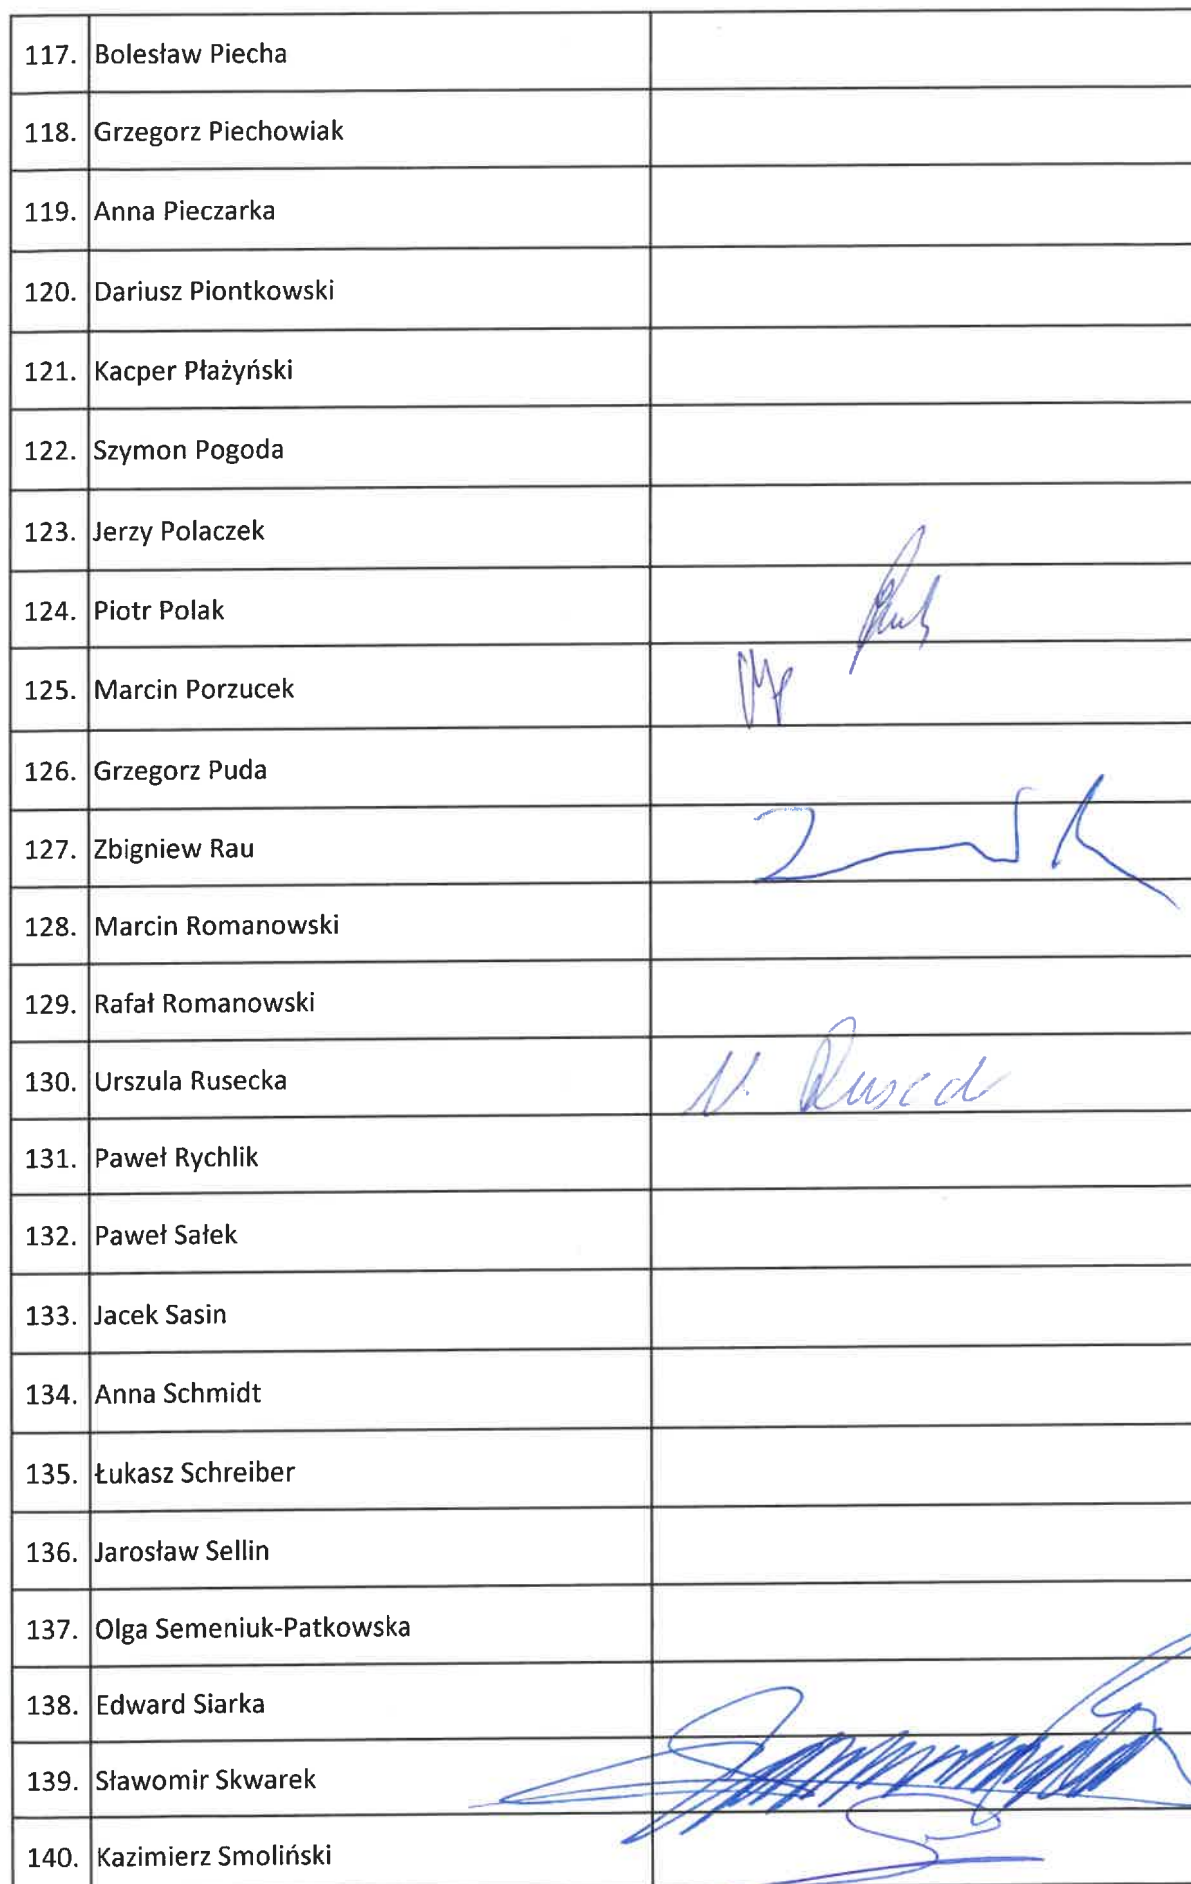 117. Bolesław Piecha
118. Grzegorz Piechowiak
119. Anna Pieczarka
120. Dariusz Piontkowski
121. Kacper Płażyński
122. Szymon Pogoda
123. Jerzy Polaczek
124. Piotr Polak
125. Marcin Porzucek
126. Grzegorz Puda
127. Zbigniew Rau
128. Marcin Romanowski
129. Rafał Romanowski
130. Urszula Rusecka
131. Paweł Rychlik
132. Paweł Sałek
133. Jacek Sasin
134. Anna Schmidt
135. Łukasz Schreiber
136. Jarosław Sellin
137. Olga Semeniuk-Patkowska
138. Edward Siarka
139. Sławomir Skwarek
140. Kazimierz Smoliński